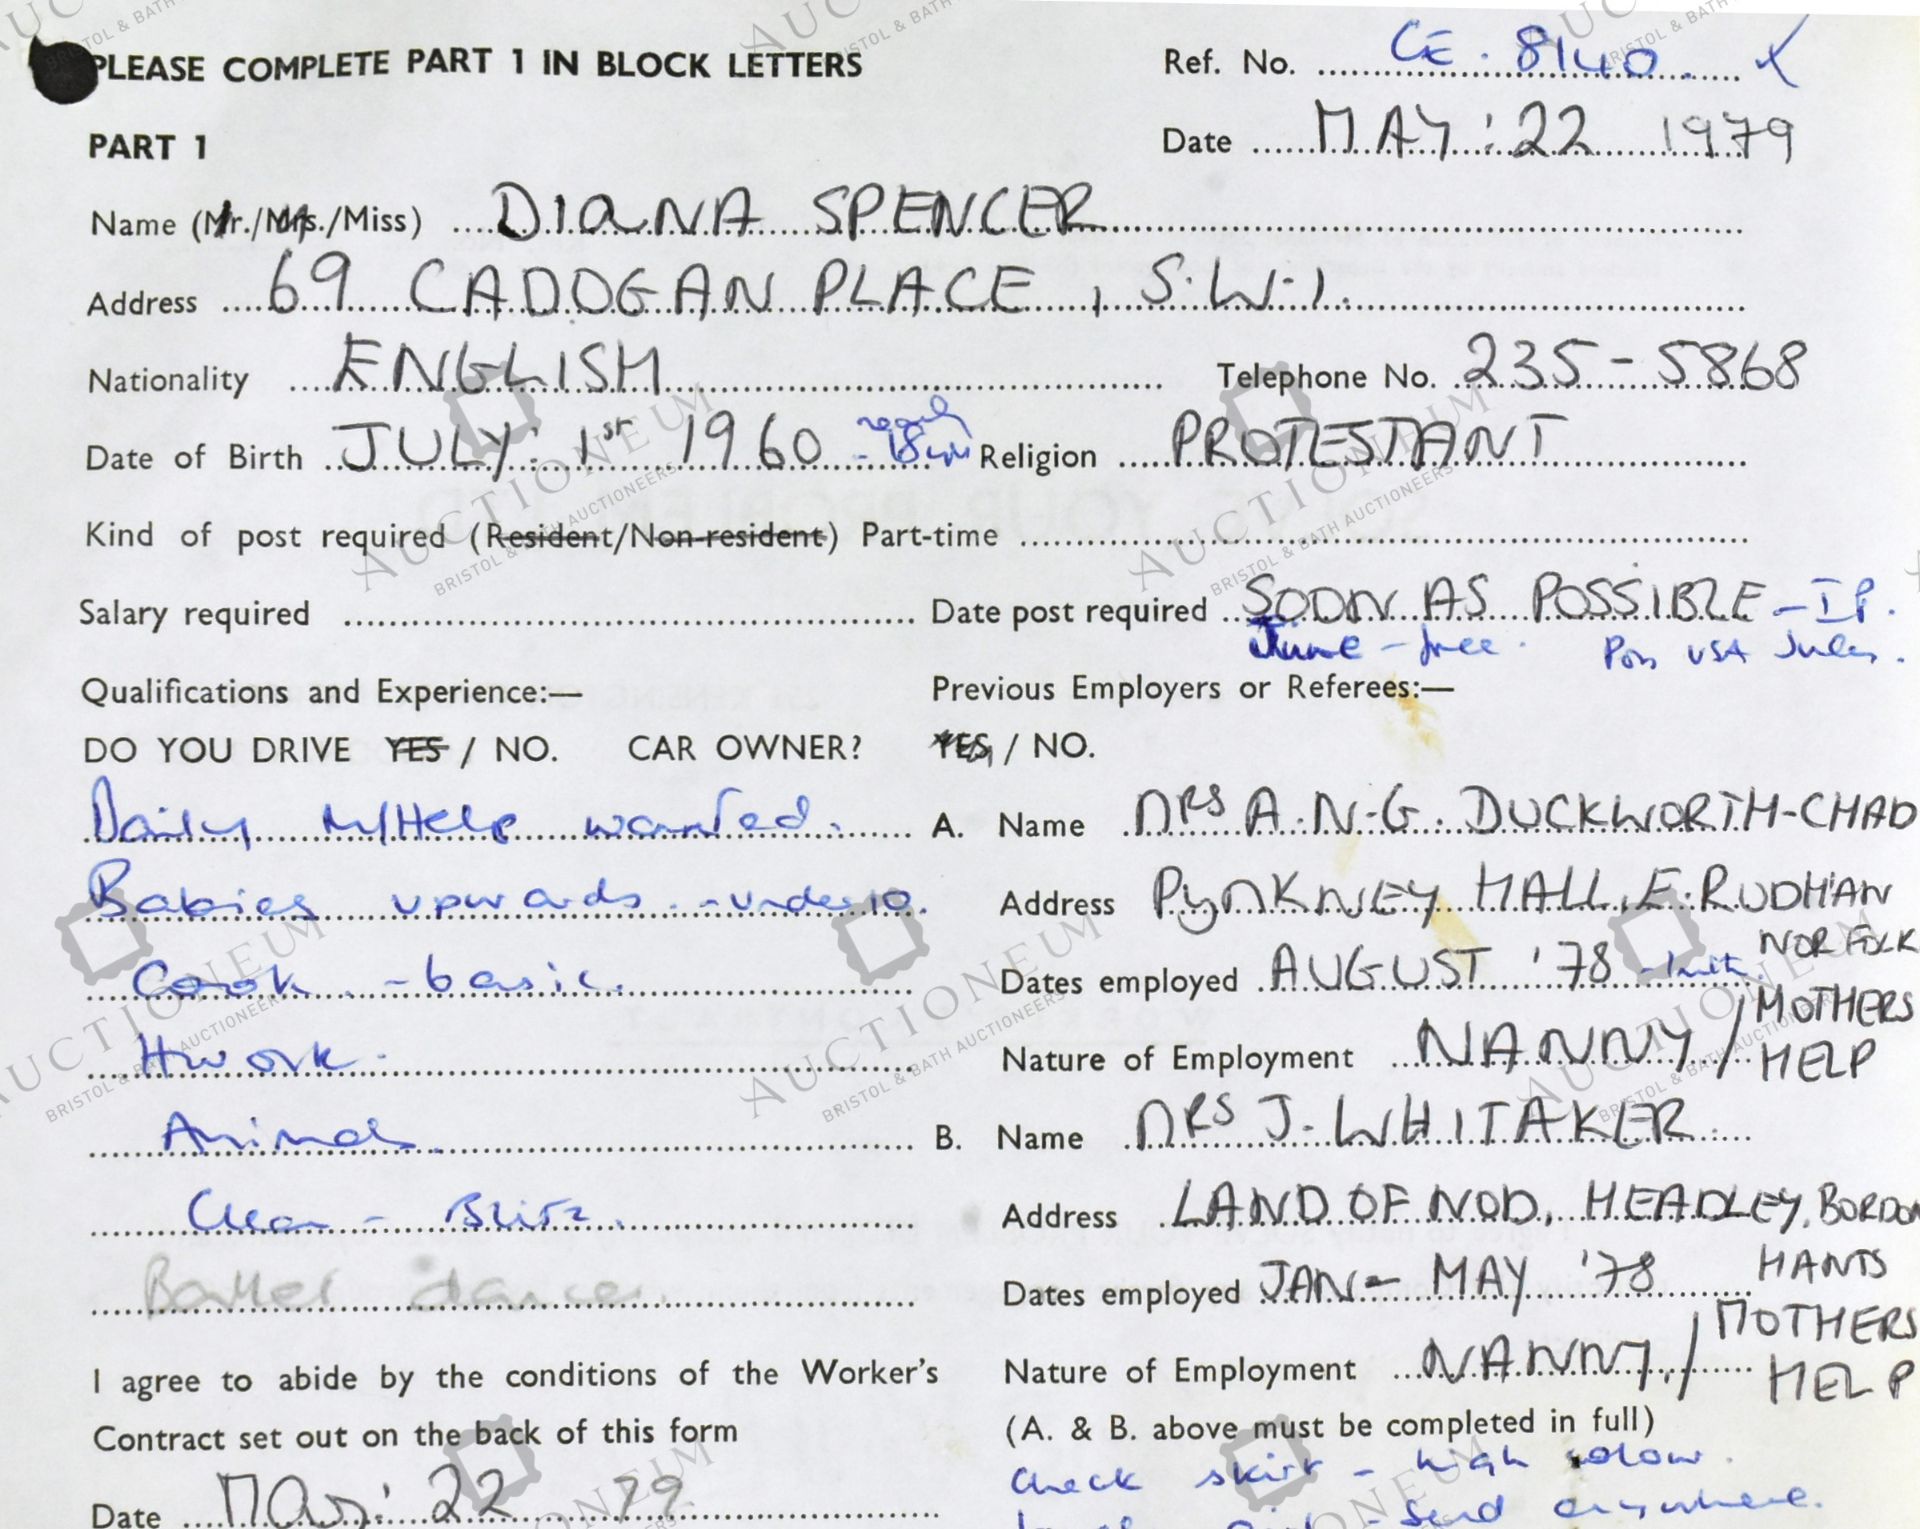 PLEASE COMPLETE PART 1 IN BLOCK LETTERS
Ref. No. CE. 8140.
PART 1
Date MAY: 22 1979
Name (Mr./Mrs./Miss) DIANA SPENCER
Address 69 CADOGAN PLACE, S.W.1.
Nationality ENGLISH Telephone No. 235-5868
Date of Birth JULY: 1st 1960 - 18 Religion PROTESTANT
Kind of post required (Resident/Non-resident) Part-time
Salary required Date post required SOON AS POSSIBLE -
June - free. Poss USA
Qualifications and Experience:— Previous Employers or Referees:—
DO YOU DRIVE YES / NO. CAR OWNER? YES / NO.
Daily M/Help wanted. A. Name MRS A.N.G. DUCKWORTH-CHAD
Babies upwards - under 10. Address PYNKNEY HALL, E. RUDHAN
NORFOLK
Cook - basic. Dates employed AUGUST '78
Hwork. Nature of Employment NANNY / MOTHERS
HELP
Animals. B. Name MRS J. WHITAKER
Clean - Blitz. Address LAND OF NOD, HEADLEY, BORDON
HANTS
Ballet dancer Dates employed JAN - MAY '78
I agree to abide by the conditions of the Worker's Nature of Employment NANNY / MOTHERS
HELP
Contract set out on the back of this form (A. & B. above must be completed in full)
check skirt - high colour.
Date May: 22 79
- Send anywhere.
AUCTIONEUM
BRISTOL & BATH AUCTIONEERS